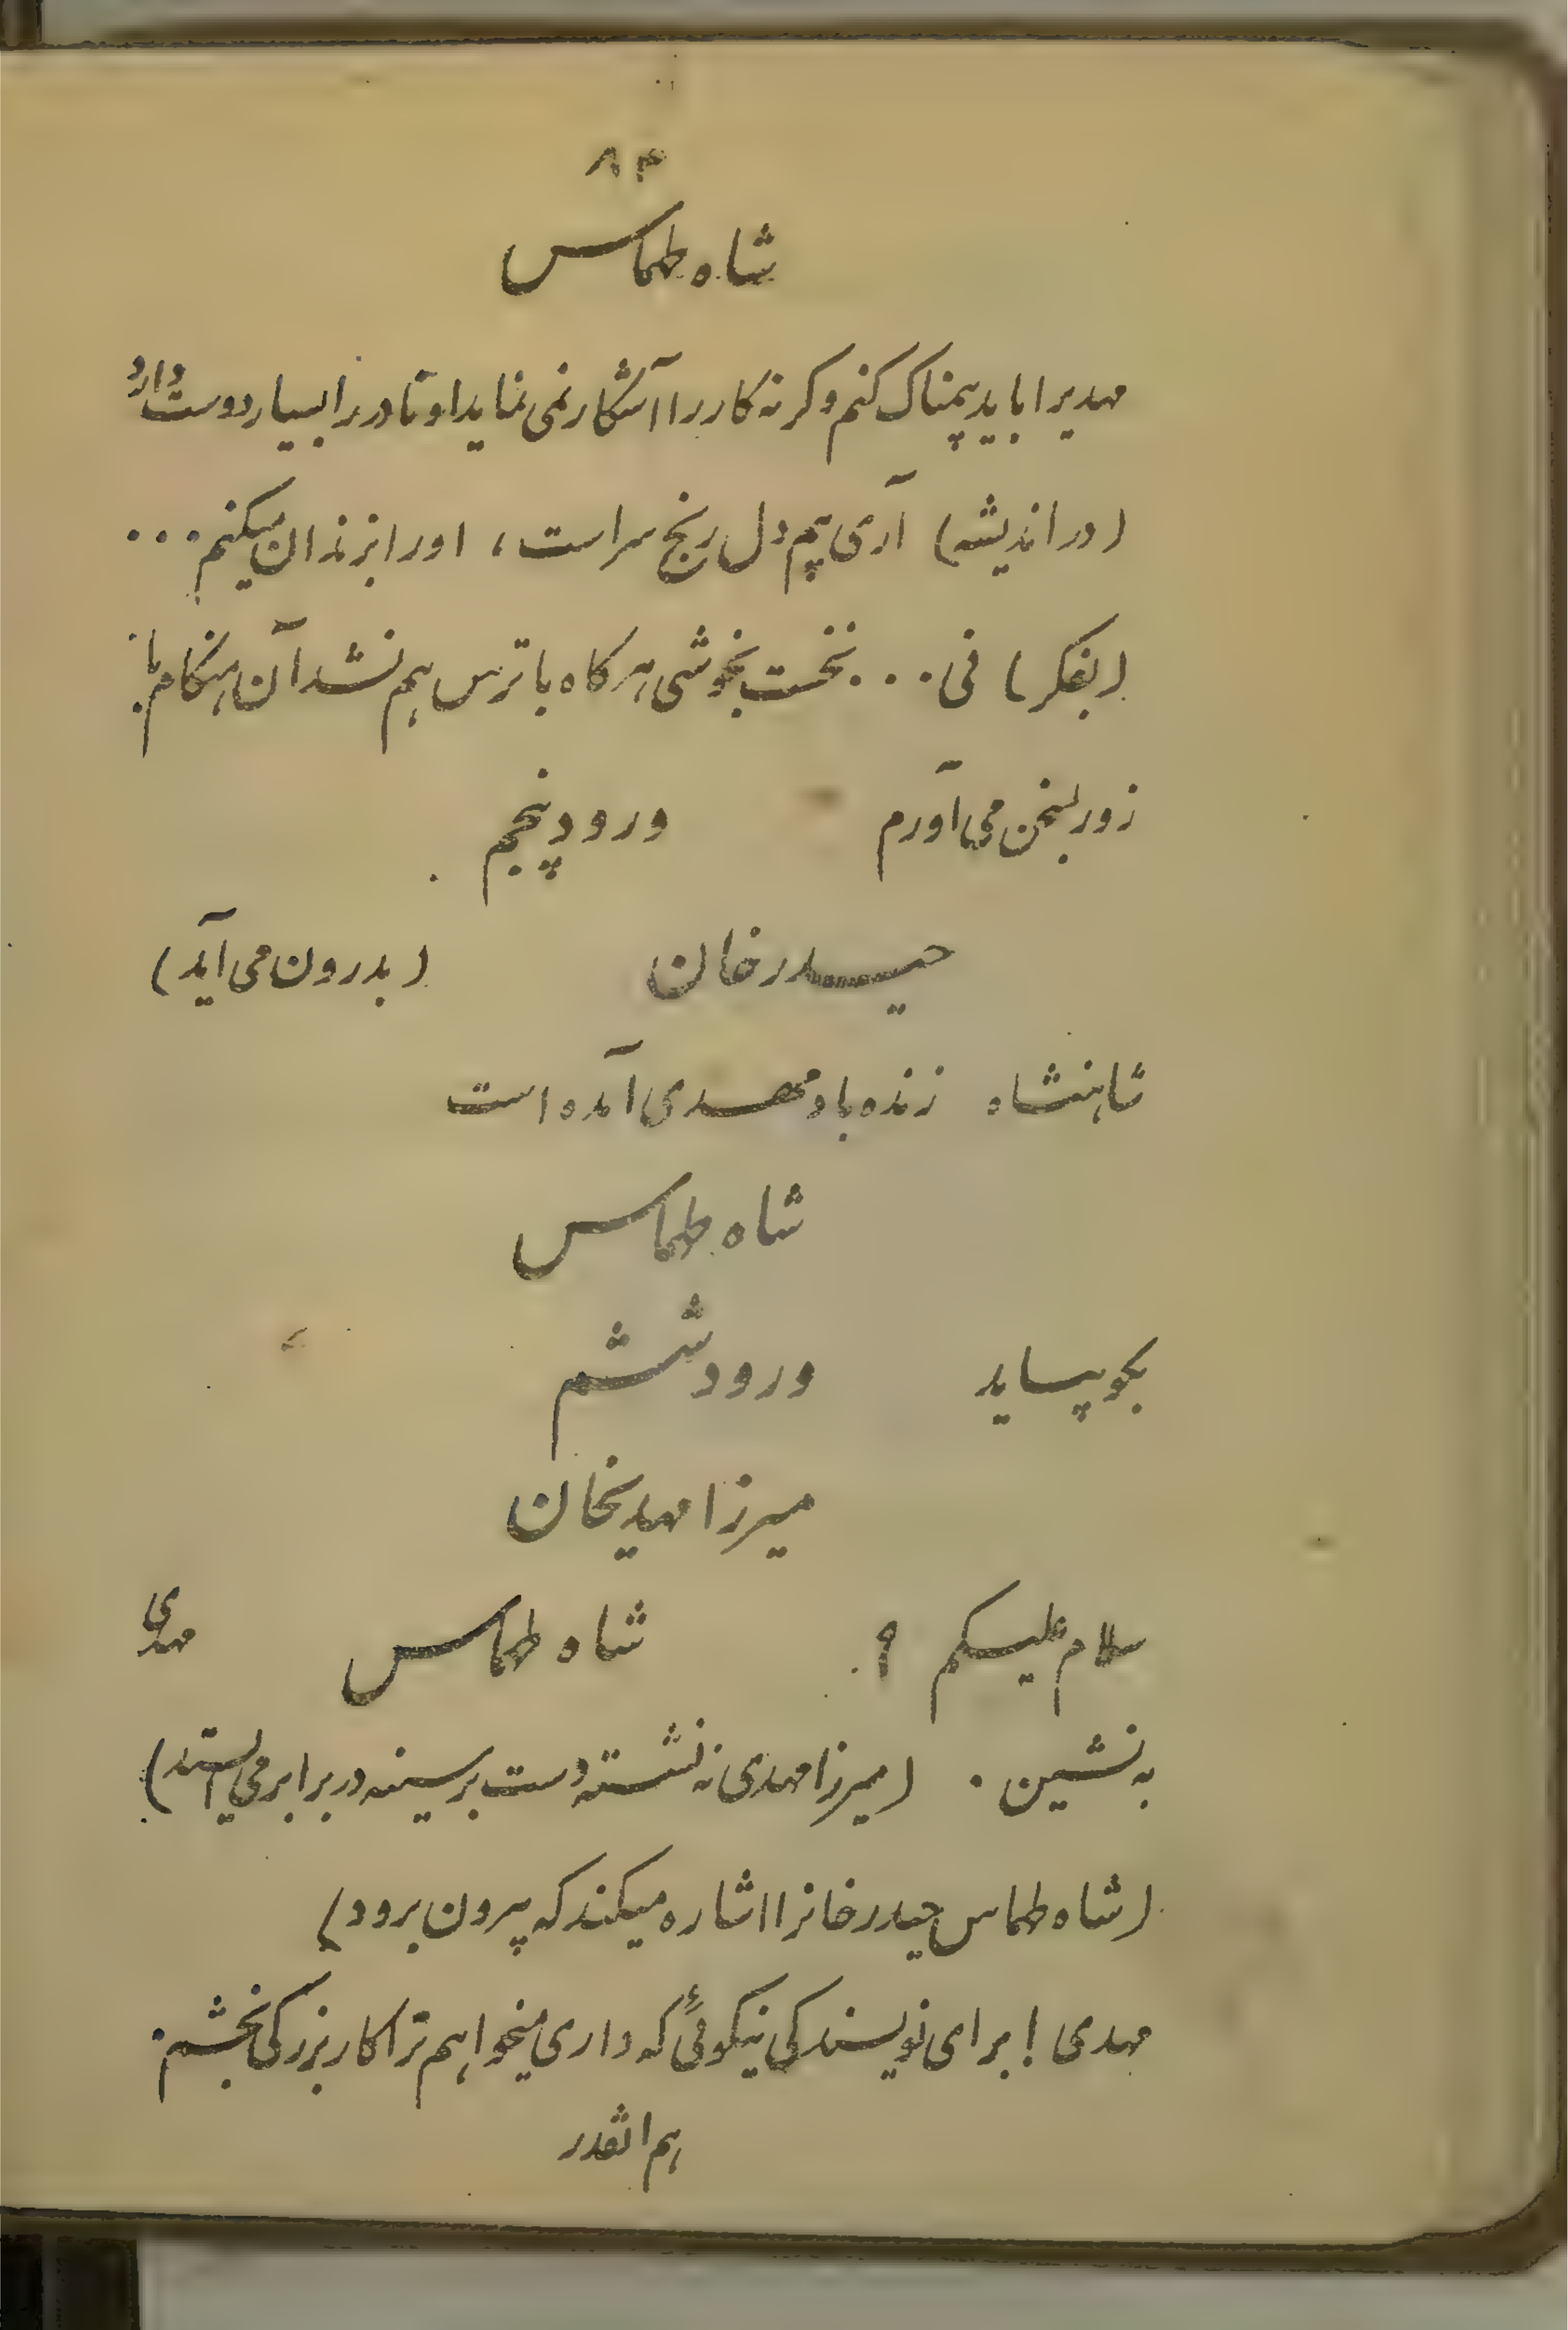 ۸۴
شاه طهماس
مهدیرا باید بیمناک کنم وکرنه کار را آشکار نمی نماید او نادر را بسیار دوست دارد
(در اندیشه) آری بیم دل رنج سر است، او را بزندان میکنم...
(بفکر) نی... نخست بخوشی هرکاه با ترس هم نشد آن هنکام با
زور بسخن می آورم ورود پنجم
حیدرخان (بدرون می آید)
شاهنشاه زنده باد مهدی آمده است
شاه طهماس
بکو بیاید ورود ششم
میرزا مهدیخان
سلام علیکم ؟ شاه طهماس مهدی
به نشین . (میرزا مهدی نه نشسته دست بر سینه در برابر می ایستد)
(شاه طهماس حیدرخانرا اشاره میکند که بیرون برود)
مهدی ! برای نویسندکی نیکوئی که داری میخواهم ترا کار بزرکی بخشم.
هم انقدر